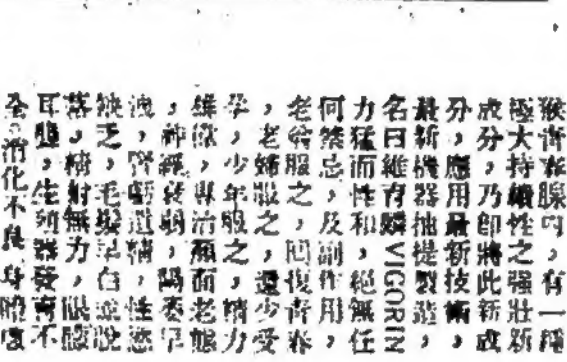 猴青春腺內，有一種
極大持續性之強壯新
成分，乃即將此新成
分，應用最新技術，
最新機器抽提製造，
名曰維育麟VIGORIN
力猛而性和，絕無任
何禁忌，及副作用，
老翁服之，回復青春
，老婦服之，還少受
孕，少年服之，精力
雄厚，專治顏面老態
，神經衰弱，陽萎早
洩，腎虧遺精，性慾
缺乏，毛髮早白或脫
落，精射無力，眼朦
耳聾，生殖器發育不
全。消化不良，身瘦